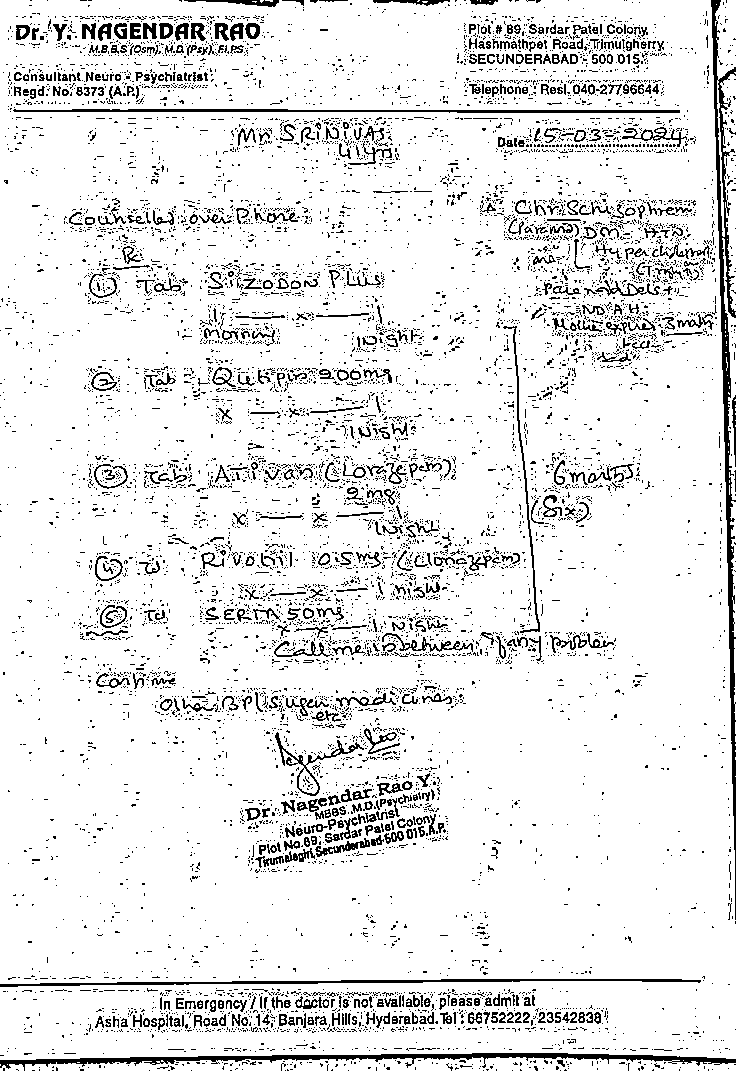 Dr. Y. NAGENDAR RAO
M.B.B.S (Osm), M.D. (Psy), F.I.P.S
Consultant Neuro - Psychiatrist
Regd. No. 8373 (A.P.)
Plot # 89, Sardar Patel Colony,
Hashmathpet Road, Trimulgherry,
SECUNDERABAD - 500 015.
Telephone : Resi. 040-27796644
Mr SRINIVAS
41 yr
Date 15-03-2024
Counselled over Phone
Δ Chr Schizophrenia
(Paranoid) DM - HTN
Hypercholest
Paranoid Dels +
Rx
① Tab SIZODON PLUS
1 — x — 1
Morning 1 Night
② Tab Qutipin 200mg
x — x — 1
1 Night
③ Tab ATivan (Lorazepam)
2 mg
x — x — 1
1 Night
6 months
(Six)
④ Rivotril 0.5mg (Clonazepam)
x — x — 1 night
⑤ SERTA 50mg
x — x — 1 Night
Call me in between, if any problem
Continue
Other BP/sugar medicines
etc
Dr. Nagendar Rao Y.
MBBS.,M.D.(Psychiatry)
Neuro-Psychiatrist
Plot No.89, Sardar Patel Colony
Tirumalagiri,Secunderabad-500 015.A.P.
In Emergency / If the doctor is not available, please admit at
Asha Hospital, Road No. 14, Banjara Hills, Hyderabad. Tel : 66752222, 23542838